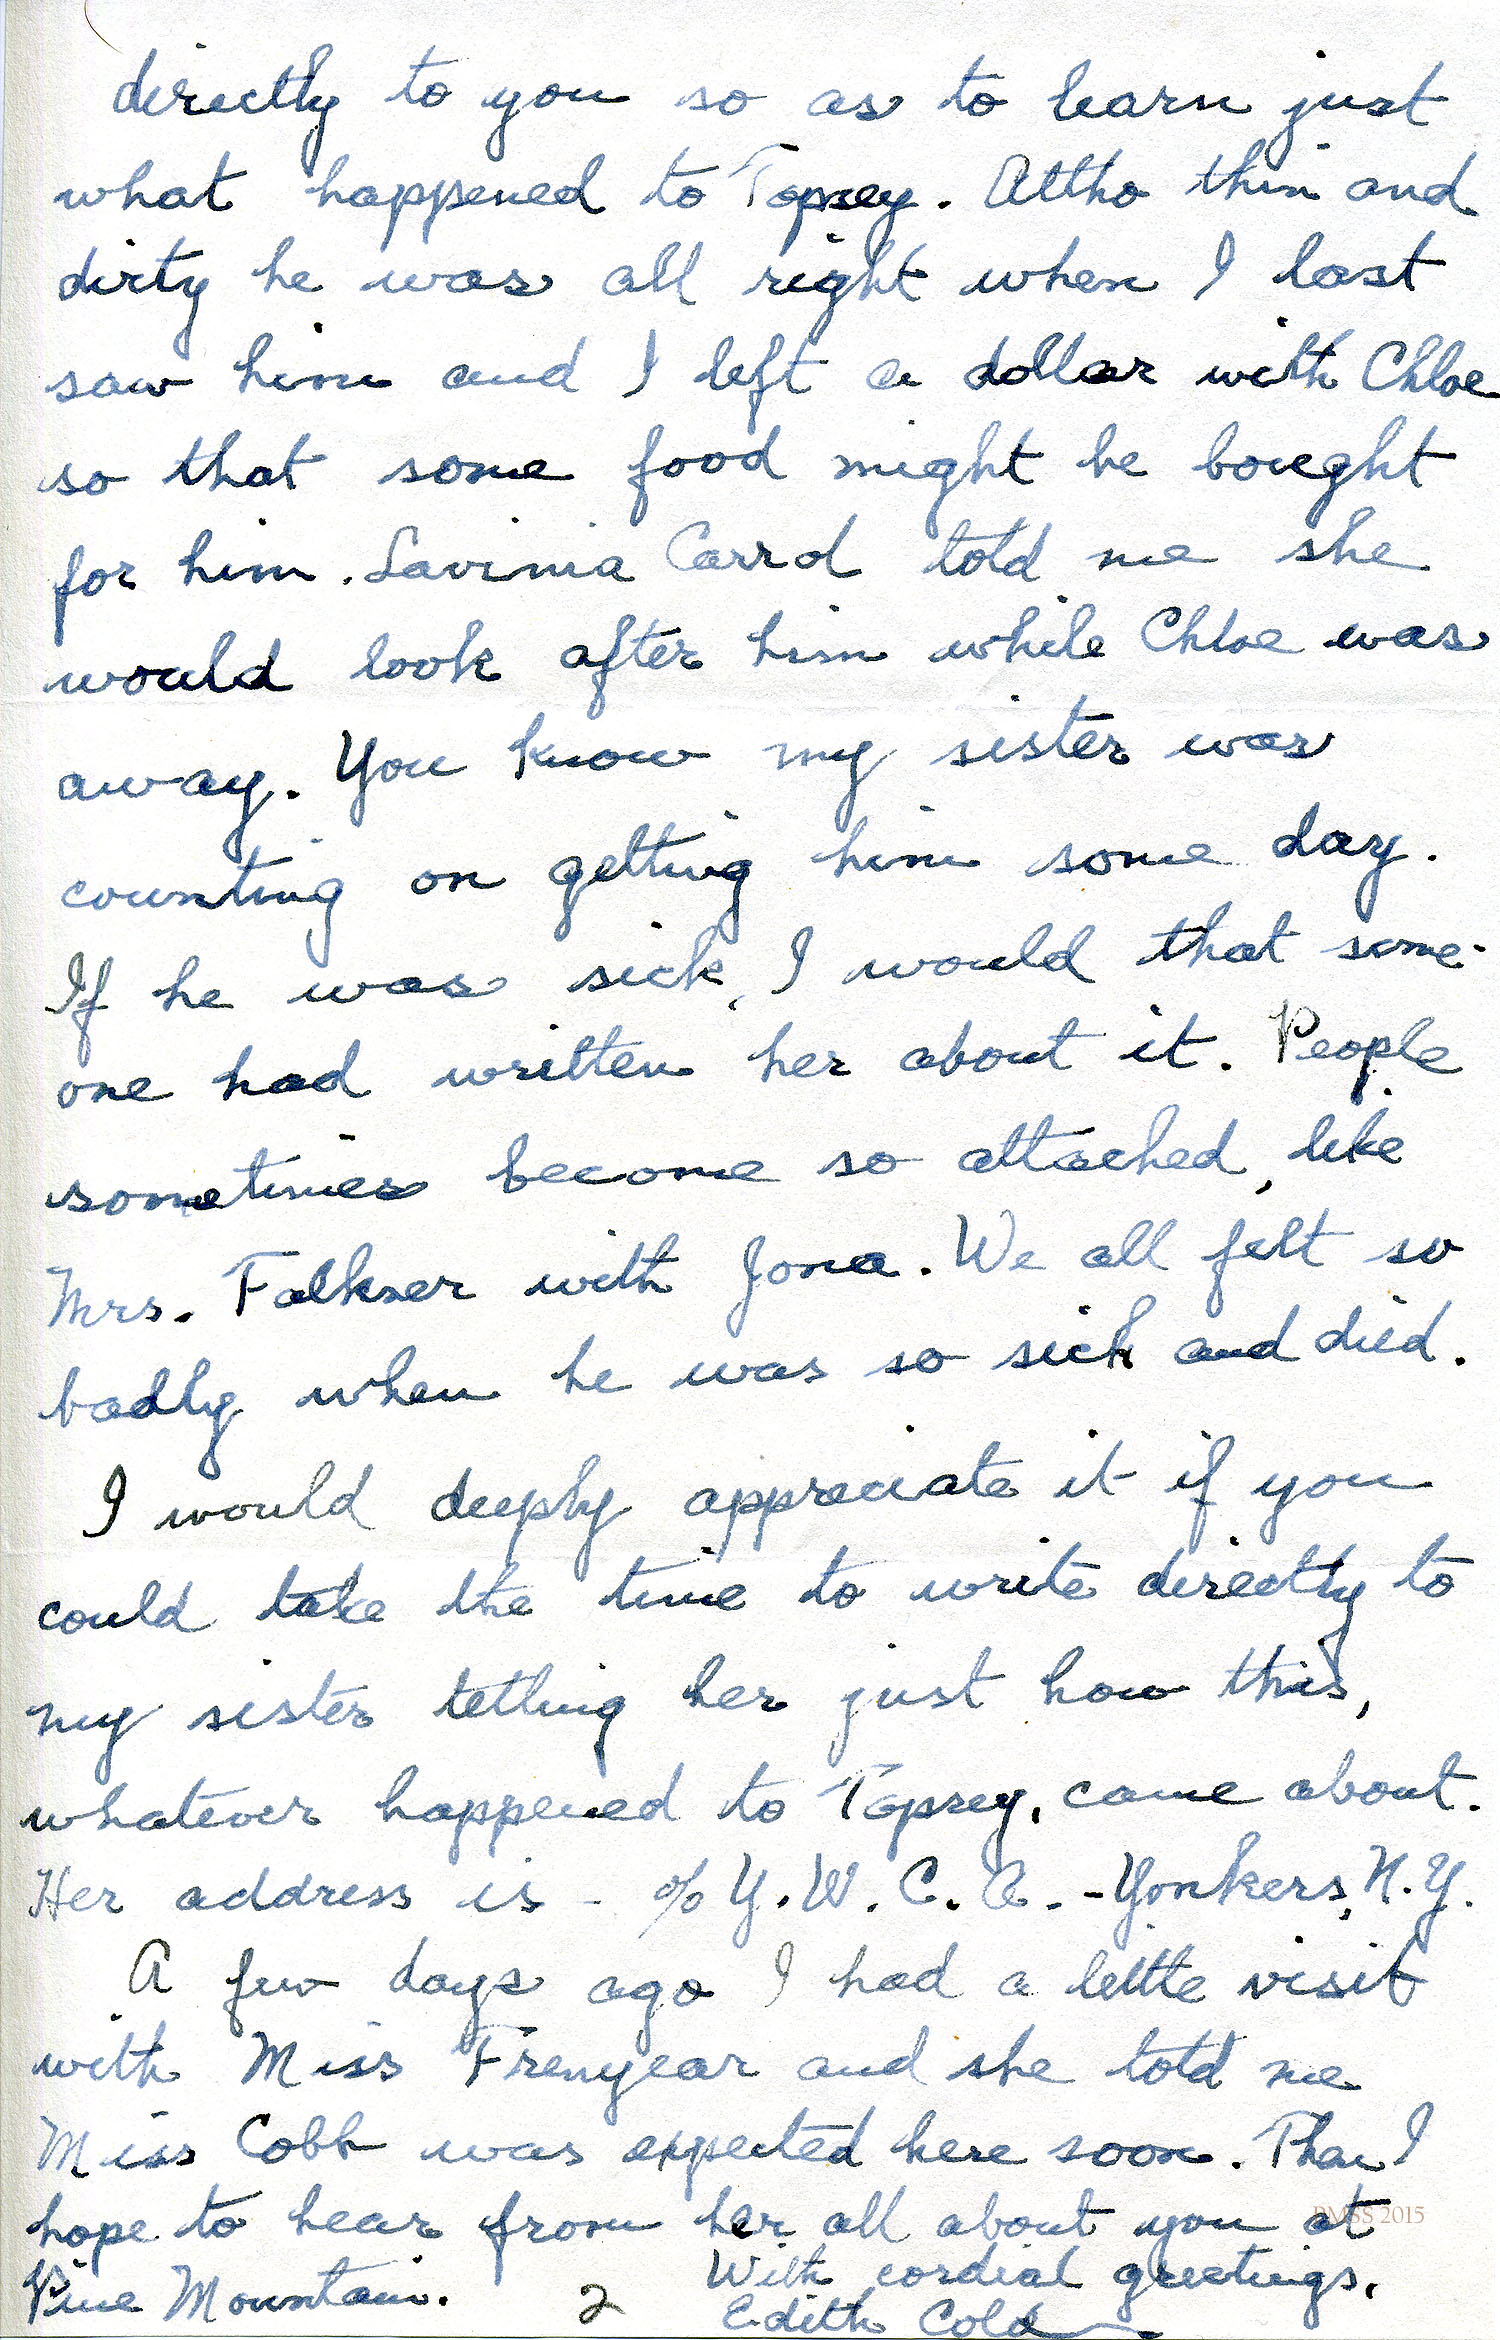 directly to you so as to learn just
what happened to Topsey. Altho thin and
dirty he was all right when I last
saw him and I left a dollar with Chloe
so that some food might be bought
for him. Lavinia Carrol told me she
would look after him while Chloe was
away. You know my sister was
counting on getting him some day.
If he was sick, I would that some-
one had written her about it. People
sometimes become so attached, like
Mrs. Falkner with Jona. We all felt so
badly when he was so sick and died.
I would deeply appreciate it if you
could take the time to write directly to
my sister telling her just how this,
whatever happened to Topsey, came about.
Her address is - c/o Y.W.C.A. - Yonkers, N.Y.
A few days ago I had a little visit
with Miss Frenyear and she told me
Miss Cobb was expected here soon. Then I
hope to hear from her all about you at
PMSS 2015
Pine Mountain. 2 With cordial greetings,
Edith Cold